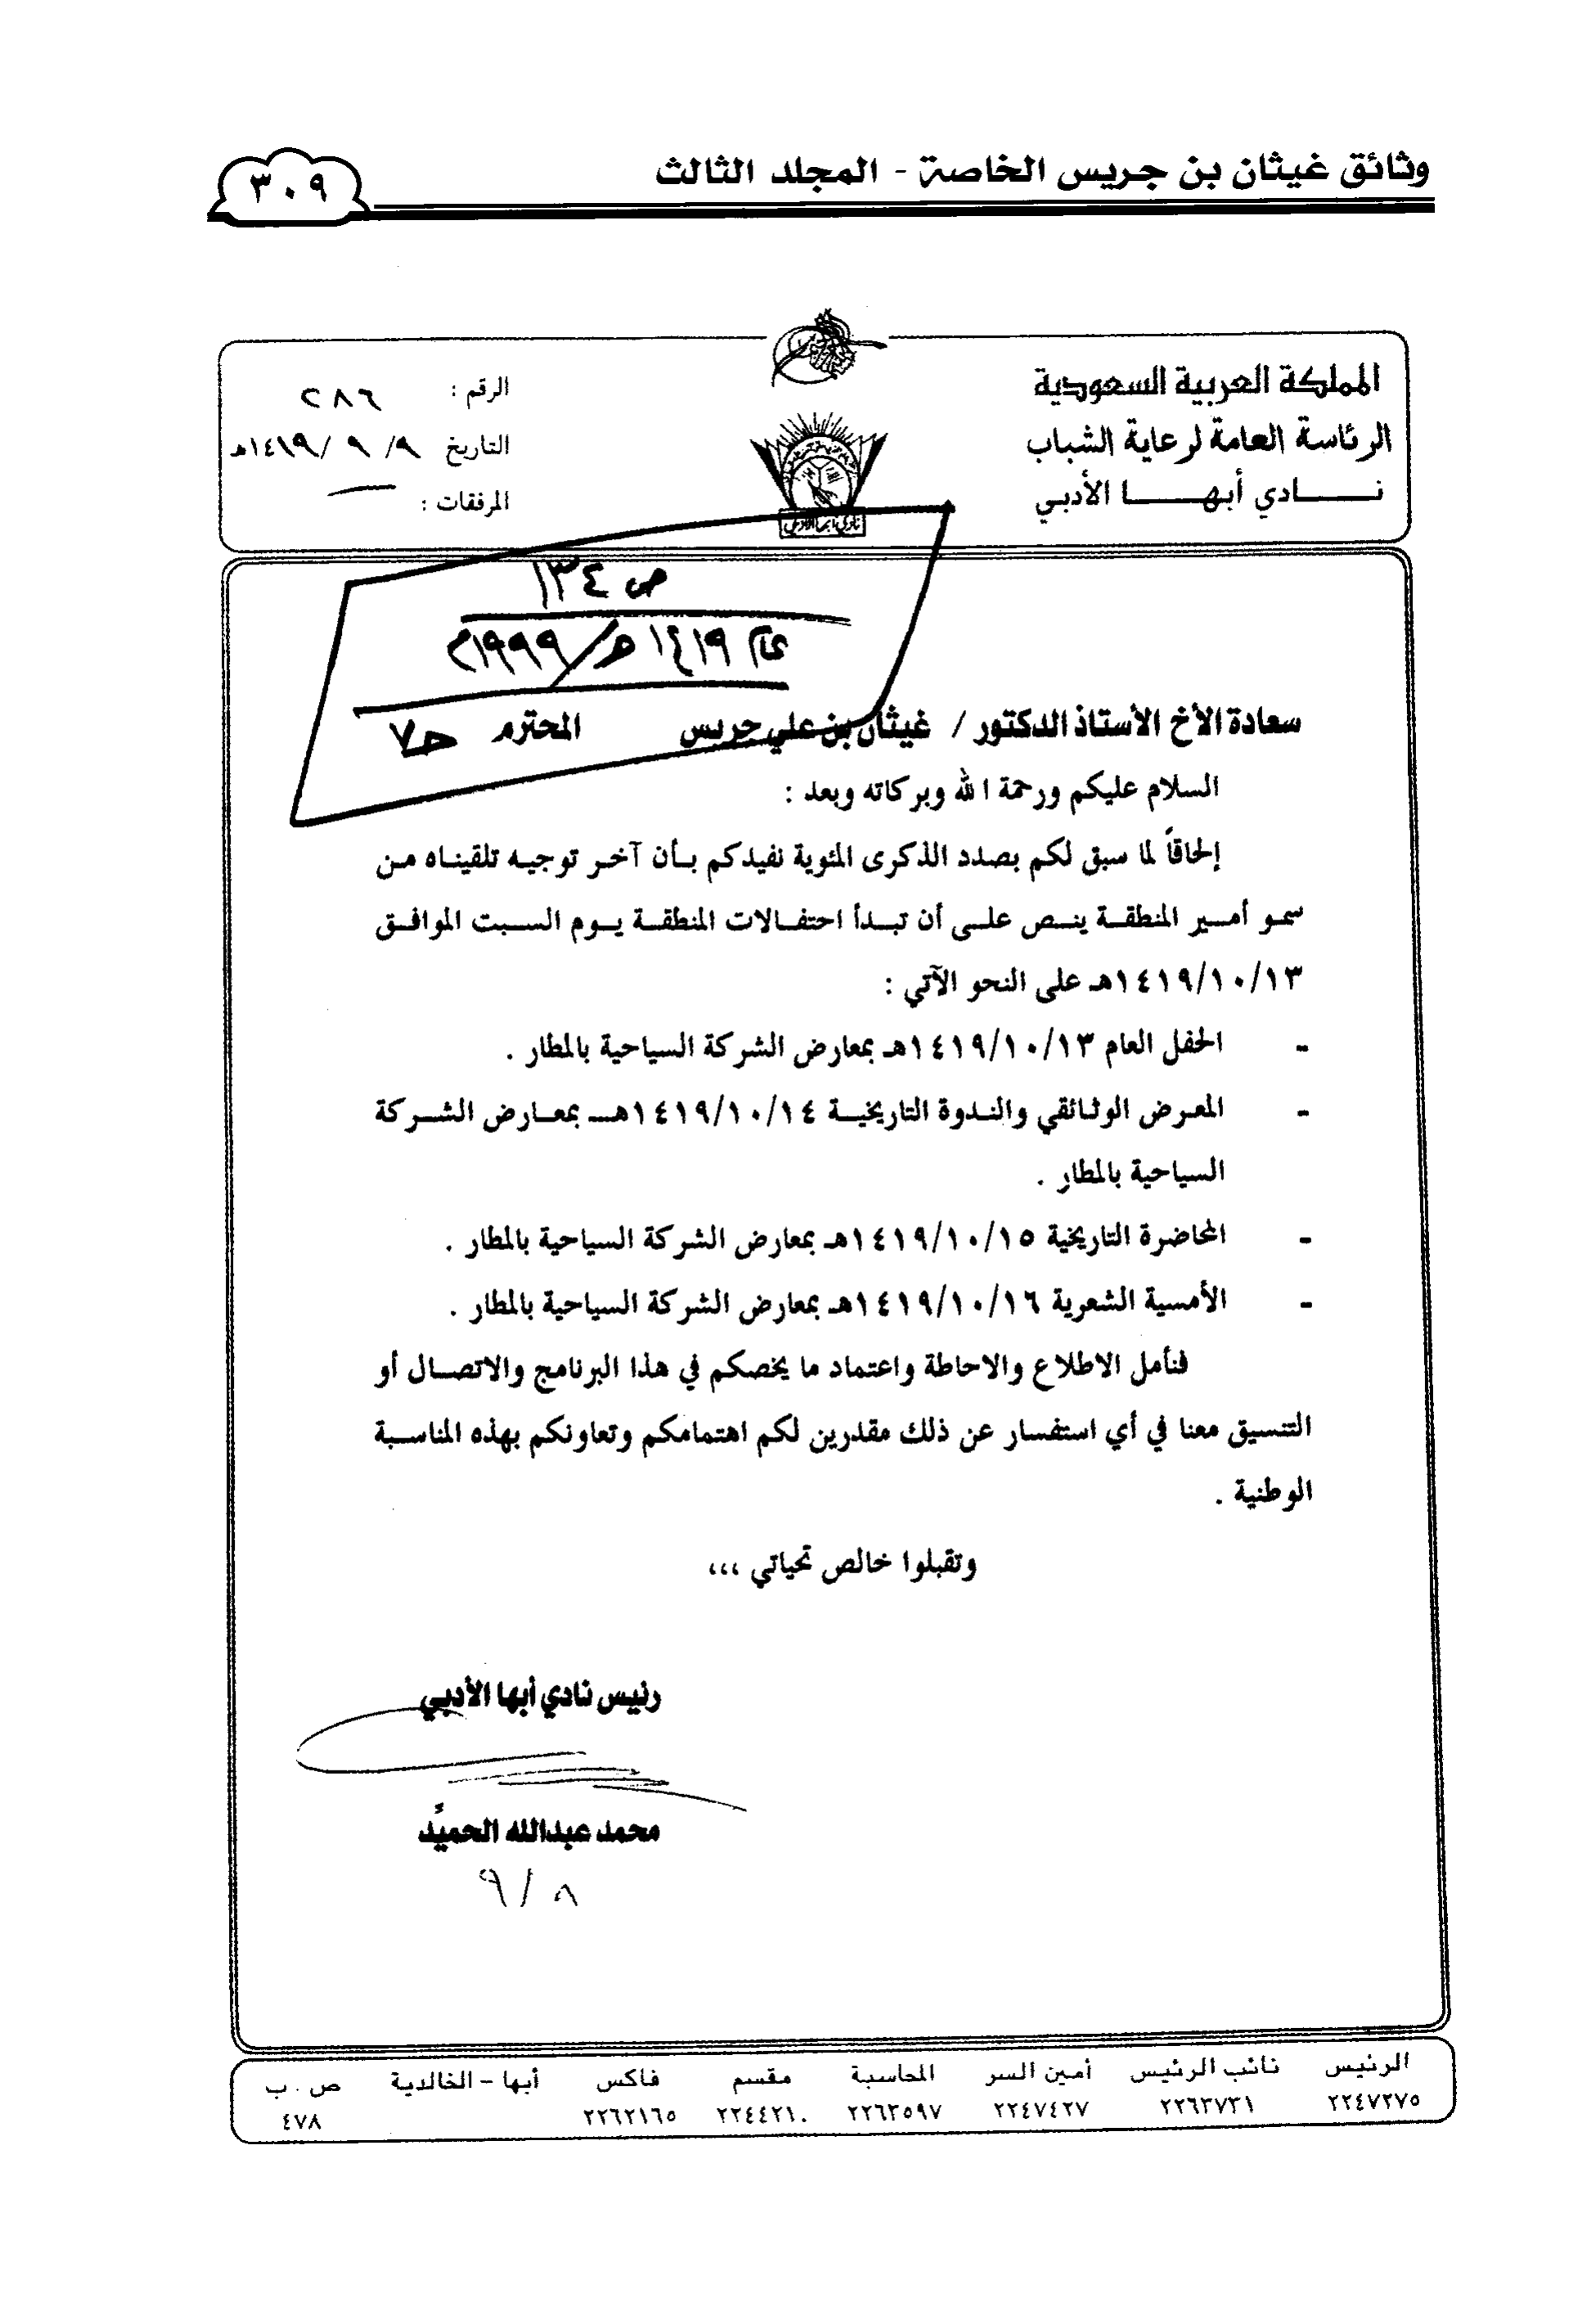 وثائق غيثان بن جريس الخاصة - المجلد الثالث
٣٠٩
المملكة العربية السعودية
الرئاسة العامة لرعاية الشباب
نـــادي أبهـــا الأدبي
الرقم : ٢٨٦
التاريخ ٩/ ٩ /١٤١٩هـ
المرفقات : —
نادي أبها الأدبي
ص ١٣٤
عام ١٤١٩هـ/١٩٩٩م
حـ٧
سعادة الأخ الأستاذ الدكتور / غيثان بن علي جريس المحترم
السلام عليكم ورحمة الله وبركاته وبعد :
إلحاقاً لما سبق لكم بصدد الذكرى المئوية نفيدكم بأن آخر توجيه تلقيناه من
سمو أمير المنطقة ينص على أن تبدأ احتفالات المنطقة يوم السبت الموافق
١٤١٩/١٠/١٣هـ على النحو الآتي :
- الحفل العام ١٤١٩/١٠/١٣هـ بمعارض الشركة السياحية بالمطار .
- المعرض الوثائقي والندوة التاريخية ١٤١٩/١٠/١٤هـ بمعارض الشركة
السياحية بالمطار .
- المحاضرة التاريخية ١٤١٩/١٠/١٥هـ بمعارض الشركة السياحية بالمطار .
- الأمسية الشعرية ١٤١٩/١٠/١٦هـ بمعارض الشركة السياحية بالمطار .
فنأمل الاطلاع والاحاطة واعتماد ما يخصكم في هذا البرنامج والاتصال أو
التنسيق معنا في أي استفسار عن ذلك مقدرين لكم اهتمامكم وتعاونكم بهذه المناسبة
الوطنية .
وتقبلوا خالص تحياتي ،،،
رئيس نادي أبها الأدبي
محمد عبدالله الحميّد
٩/٨
الرئيس نائب الرئيس أمين السر المحاسبة مقسم فاكس أبها - الخالدية ص . ب
٢٢٤٧٢٧٥ ٢٢٦٣٧٣١ ٢٢٤٧٤٢٧ ٢٢٦٣٥٩٧ ٢٢٤٤٢١٠ ٢٢٦٢١٦٥ ٤٧٨